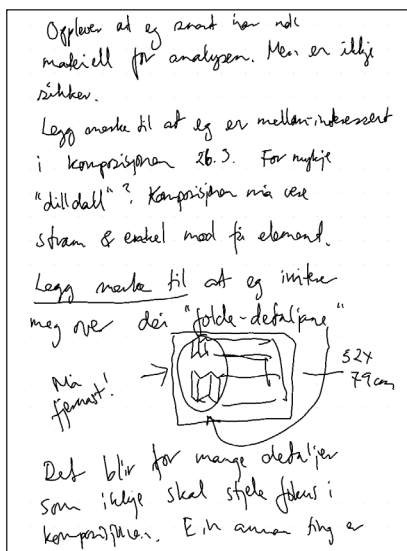 Opplever at eg snart har nok
materiell for analysen. Men er ikkje
sikker.
Legg merke til at eg er mellom-interessert
i komposisjonen 26.3. For mykje
"dilldall"? Komposisjonen må vere
stram & enkel med få element.
Legg merke til at eg irriterer
meg over dei "folde-detaljane"
Må
fjernast!
52x
79cm
Det blir for mange detaljer
som ikkje skal stjele fokus i
komposisjonen. Ein annan ting er